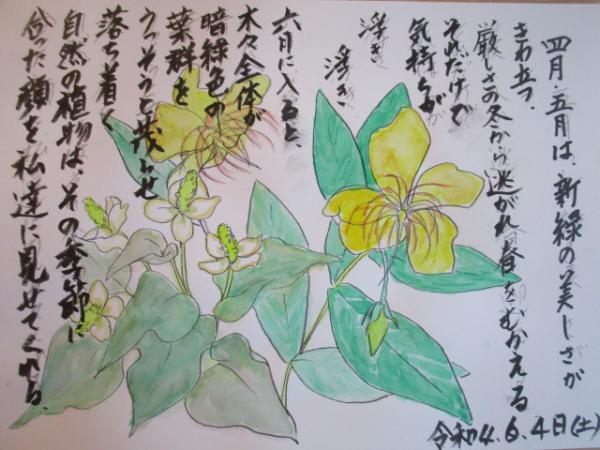 四月・五月は、新緑の美しさが
きわ立つ、
厳しさの冬から逃がれ春をむかえる
それだけで
気持ちが
浮き
浮き
六月に入ると、
木々全体が
暗緑色の
葉群を
うっそうと茂らせ
落ち着く
自然の植物は、その季節に
合った顔を私達に見せてくれる、
令和4.6.4日(土)